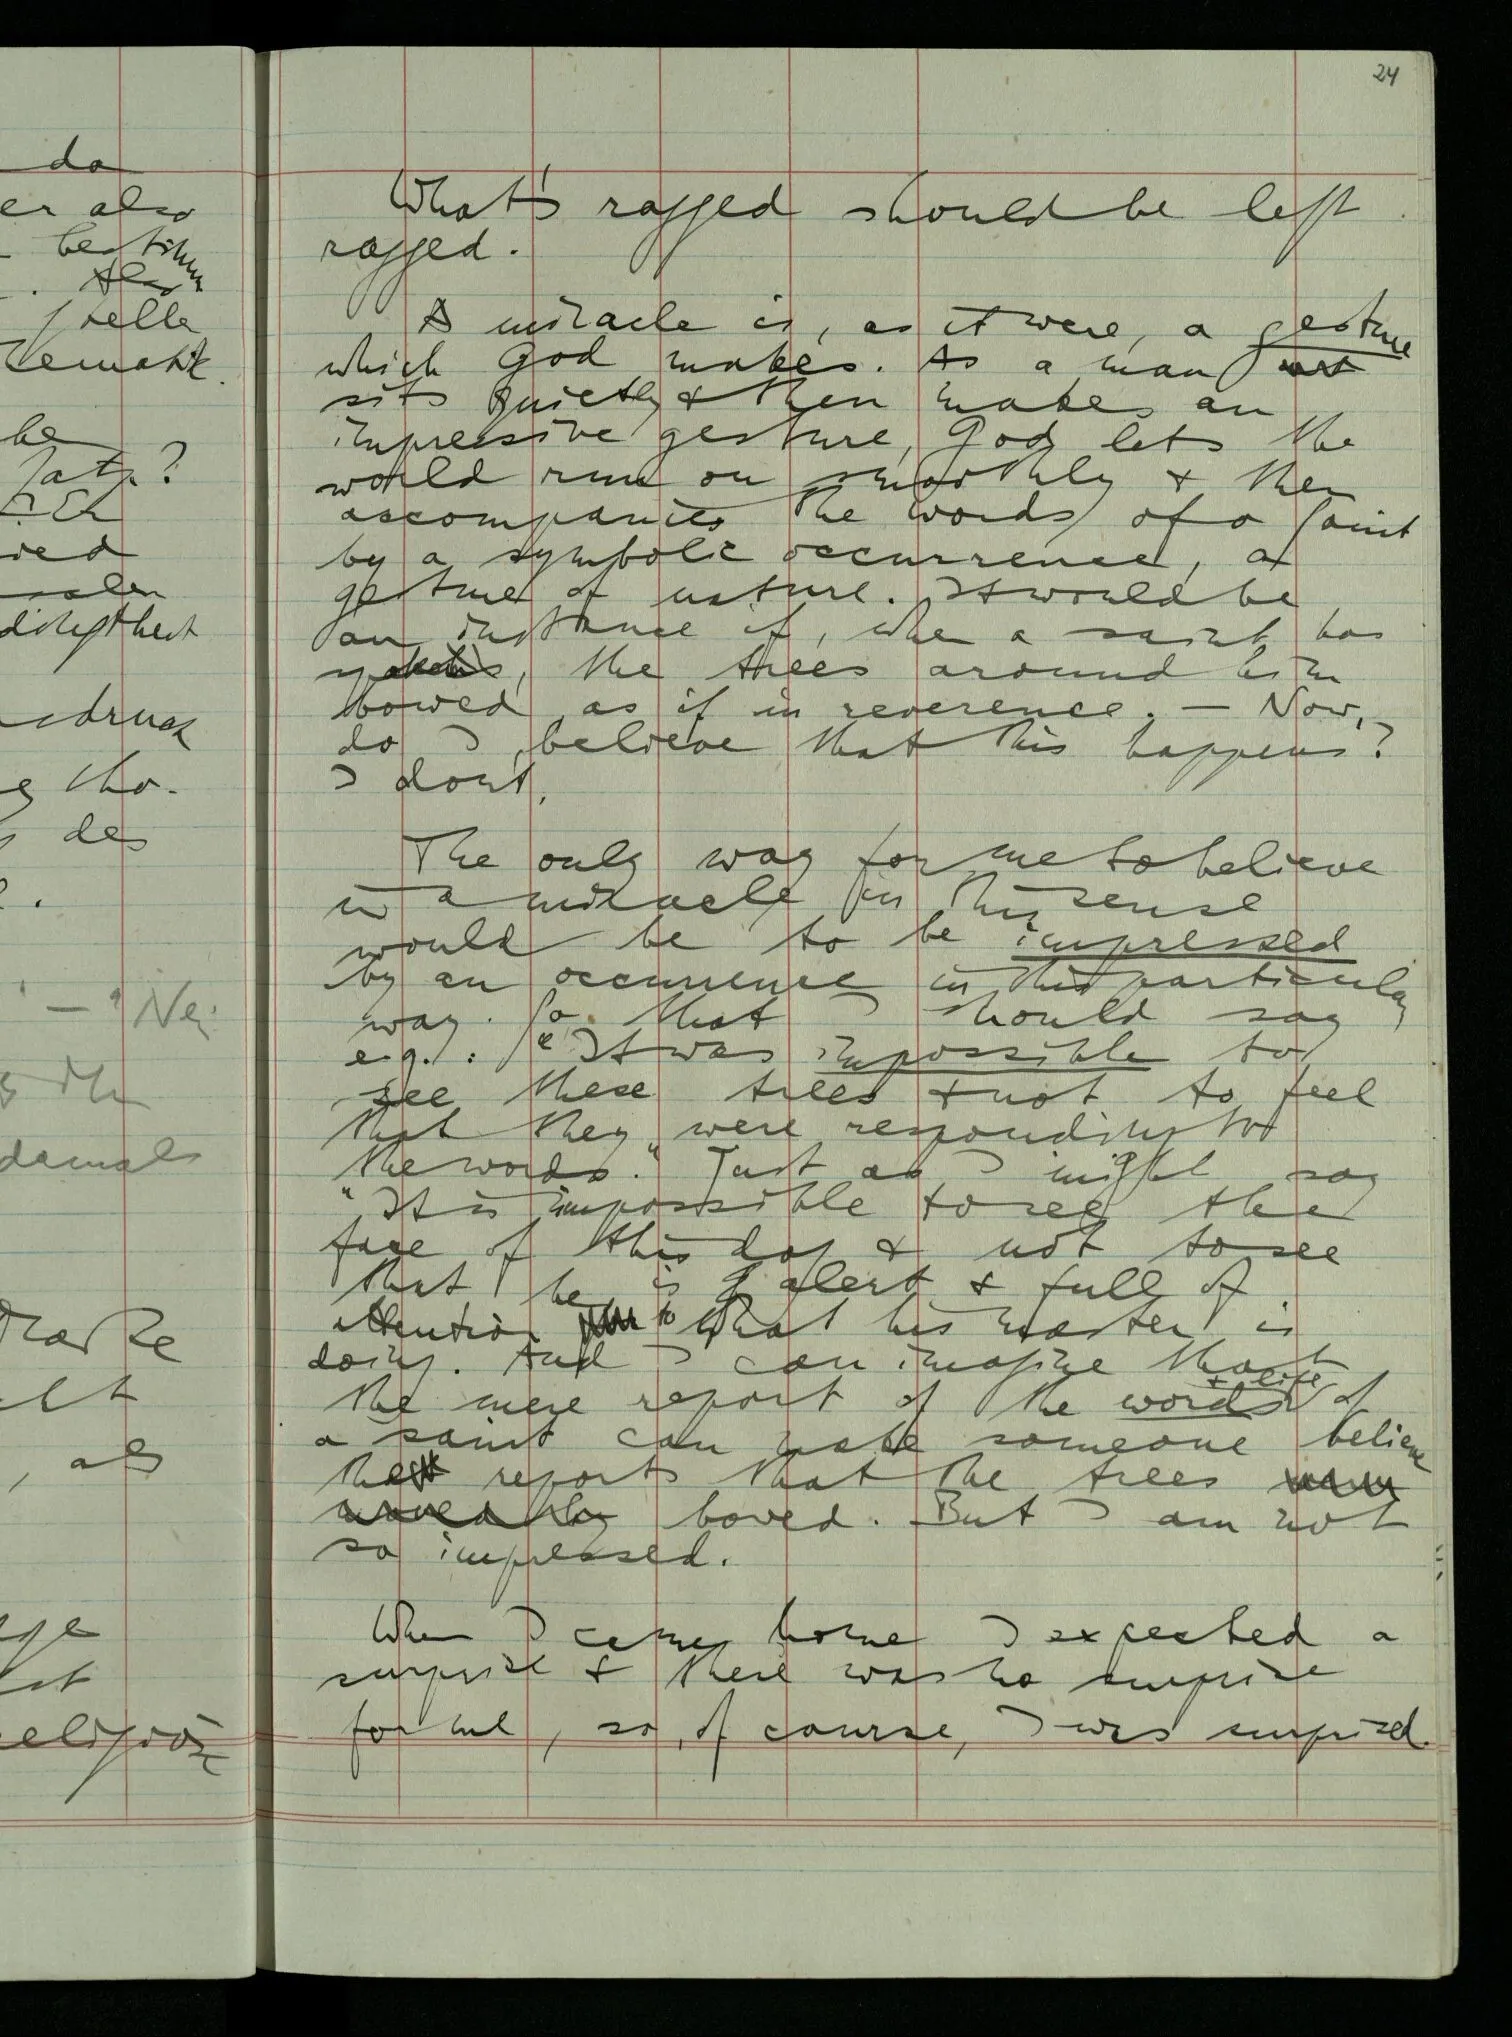 da
er also
.
he
?
des
damals
, als
24
What's ragged should be left
ragged.
A miracle is, as it were, a gesture
which God makes. As a man
sits quietly & then makes an
impressive gesture, God lets the
world run on smoothly & then
accompanies the words of a Saint
by a symbolic occurrence, a
gesture of nature. It would be
an instance if, when a saint has
spoken, the trees around him
bowed, as if in reverence. – Now,
do I believe that this happens?
I don't.
The only way for me to believe
in a miracle in this sense
would be to be impressed
by an occurrence in this particular
way. So that I should say
e.g.: "It was impossible to
see these trees & not to feel
that they were responding to
the words." Just as I might say
"It is impossible to see the
face of this dog & not to see
that he is alert & full of
attention to what his master is
doing. And I can imagine that
the mere report of the words & life of
a saint can make someone believe
the reports that the trees
bowed. But I am not
so impressed.
When I came home I expected a
surprise & there was no surprise
for me, so, of course, I was surprised.